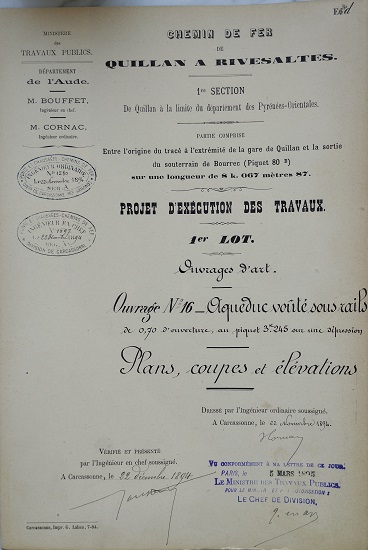 MINISTÈRE
des
TRAVAUX PUBLICS.
DÉPARTEMENT
de l'Aude.
M. BOUFFET,
Ingénieur en chef.
M. CORNAC,
Ingénieur ordinaire.
INGÉNIEUR ORDINAIRE
INGÉNIEUR EN CHEF
DIVISION DE CARCASSONNE
CHEMIN DE FER
DE
QUILLAN A RIVESALTES.
1re SECTION
De Quillan à la limite du département des Pyrénées-Orientales.
PARTIE COMPRISE
Entre l'origine du tracé à l'extrémité de la gare de Quillan et la sortie
du souterrain de Bourrec (Piquet 80
sur une longueur de 8 k. 067 mètres 87.
PROJET D'EXÉCUTION DES TRAVAUX.
1er LOT.
Ouvrages d'art.
Ouvrage N° 16 — Aqueduc voûté sous rails
de 0,70 d'ouverture, au piquet 245 sur une dépression
Plans, coupes et élévations
DRESSÉ par l'Ingénieur ordinaire soussigné.
A Carcassonne, le 22 Novembre 1894.
VÉRIFIÉ ET PRÉSENTÉ
par l'Ingénieur en chef soussigné.
A Carcassonne, le 22 Décembre 1894
VU CONFORMÉMENT A MA LETTRE DE CE JOUR,
PARIS, le 5 MARS 1895
LE MINISTRE DES TRAVAUX PUBLICS,
LE CHEF DE DIVISION,
Carcassonne, Impr. G. Labau, 7-94.